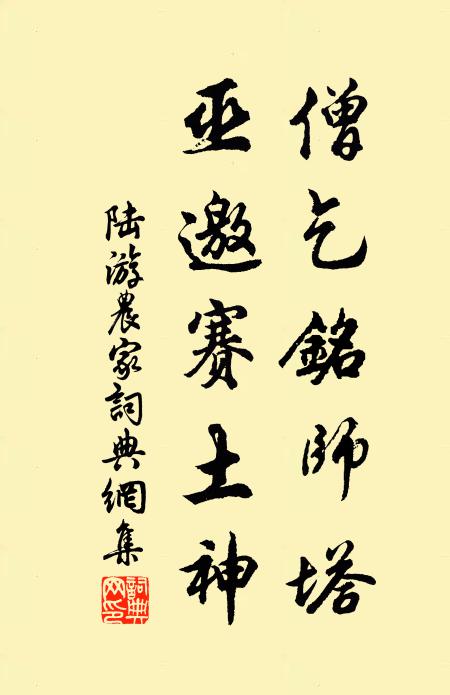 僧乞銘師塔
巫邀賽土神
陆游農家詞典網集
詞典网印